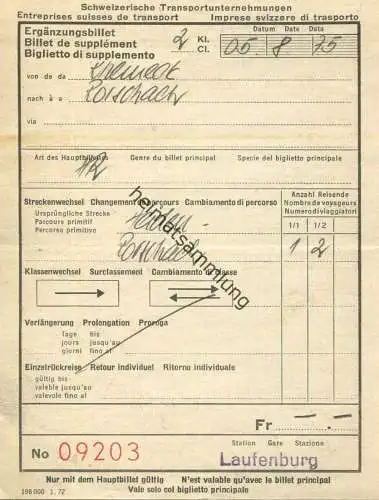 Schweizerische Transportunternehmungen
Entreprises suisses de transport Imprese svizzere di trasporto
Ergänzungsbillet
Billet de supplément
Biglietto di supplemento
2 Kl.
Cl.
Datum Date Data
05. 8 75
von de da
nach à a Rorschach
via
Art des Hauptbilletes Genre du billet principal Specie del biglietto principale
Anzahl Reisende
Nombre de voyageurs
Numero di viaggiatori
1/1 1/2
1 2
Streckenwechsel Changement de parcours Cambiamento di percorso
Ursprüngliche Strecke
Parcours primitif
Percorso primitivo
Heiden
Rorschach
Klassenwechsel Surclassement Cambiamento di classe
Verlängerung Prolongation Proroga
Tage bis
jours jusqu'au
giorni fino al
Einzelrückreise Retour individuel Ritorno individuale
gültig bis
valable jusqu'au
valevole fino al
Fr — —
No 09203
Station Gare Stazione
Laufenburg
Nur mit dem Hauptbillet gültig N'est valable qu'avec le billet principal
198 000 1. 72 Vale solo col biglietto principale
heimatsammlung.de